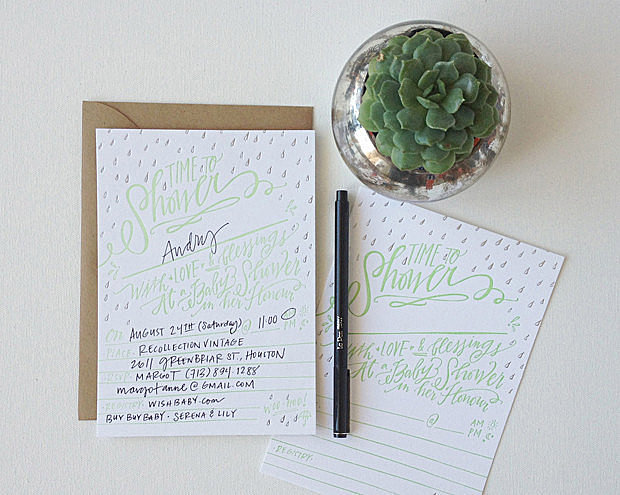 TIME TO
Shower
Audry
With LOVE & blessings
At a Baby Shower
in her Honour
ON: AUGUST 24TH (Saturday) @ 11:00
PM
PLACE: RECOLLECTION VINTAGE
2611 GREENBRIAR ST, HOULTON
RSVP: MARGOT (713) 894-1288
margotanne@gmail.com
REGISTRY: WISHBABY.com
BUY BUY BABY · SERENA & LILY
WOO HOO!
TIME TO
Shower
With LOVE & blessings
At a Baby Shower
in her Honour
@ AM
PM
REGISTRY:
Le Pen